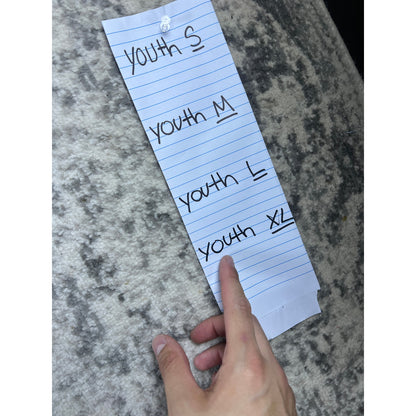 youth S
youth M
youth L
youth XL